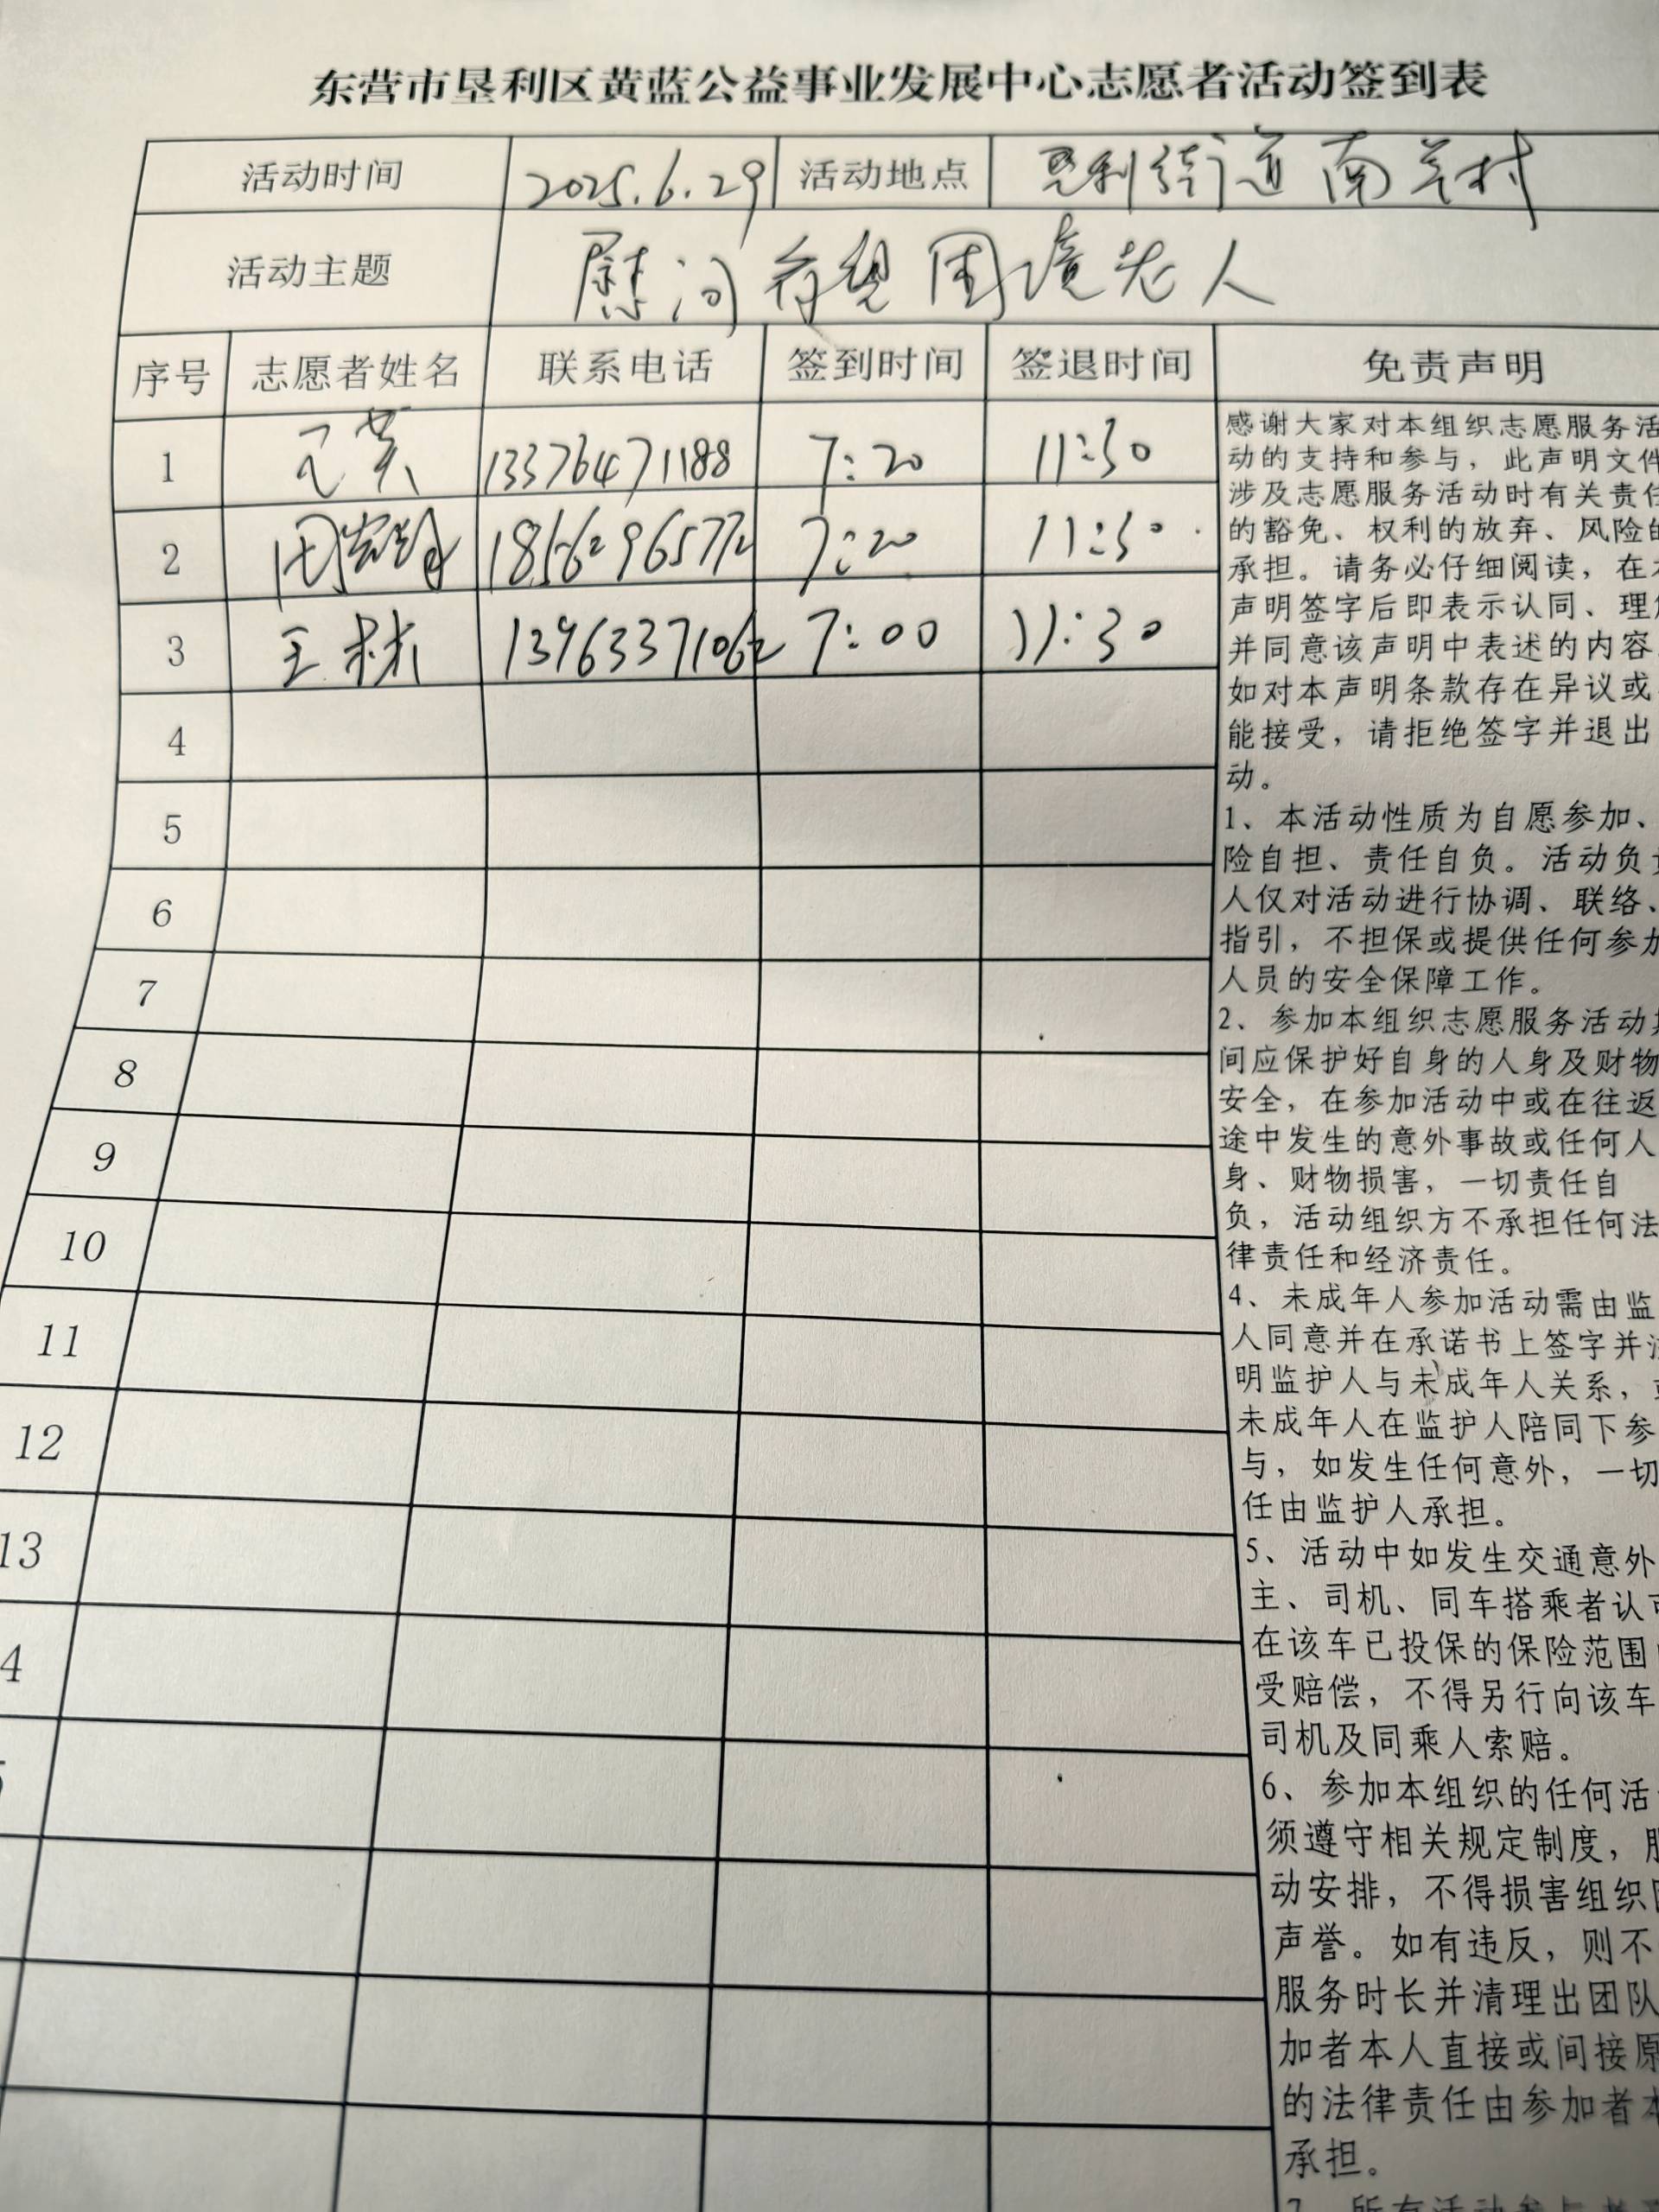 东营市垦利区黄蓝公益事业发展中心志愿者活动签到表
活动时间 2025.6.29 活动地点 垦利街道南关村
活动主题 慰问看望困境老人
序号 志愿者姓名 联系电话 签到时间 签退时间 免责声明
1 13376471188 7:20 11:30
2 18562965772 7:20 11:30
3 王林 13963371062 7:00 11:30
4
5
6
7
8
9
10
11
12
13
4
感谢大家对本组织志愿服务活
动的支持和参与，此声明文件
涉及志愿服务活动时有关责任
的豁免、权利的放弃、风险的
承担。请务必仔细阅读，在本
声明签字后即表示认同、理解
并同意该声明中表述的内容
如对本声明条款存在异议或
能接受，请拒绝签字并退出
动。
1、本活动性质为自愿参加、
险自担、责任自负。活动负责
人仅对活动进行协调、联络、
指引，不担保或提供任何参加
人员的安全保障工作。
2、参加本组织志愿服务活动期
间应保护好自身的人身及财物
安全，在参加活动中或在往返
途中发生的意外事故或任何人
身、财物损害，一切责任自
负，活动组织方不承担任何法
律责任和经济责任。
4、未成年人参加活动需由监
人同意并在承诺书上签字并注
明监护人与未成年人关系，或
未成年人在监护人陪同下参
与，如发生任何意外，一切
任由监护人承担。
5、活动中如发生交通意外
主、司机、同车搭乘者认可
在该车已投保的保险范围内
受赔偿，不得另行向该车
司机及同乘人索赔。
6、参加本组织的任何活
须遵守相关规定制度，服
动安排，不得损害组织团
声誉。如有违反，则不
服务时长并清理出团队
加者本人直接或间接原
的法律责任由参加者本
承担。
7、所有活动参与者